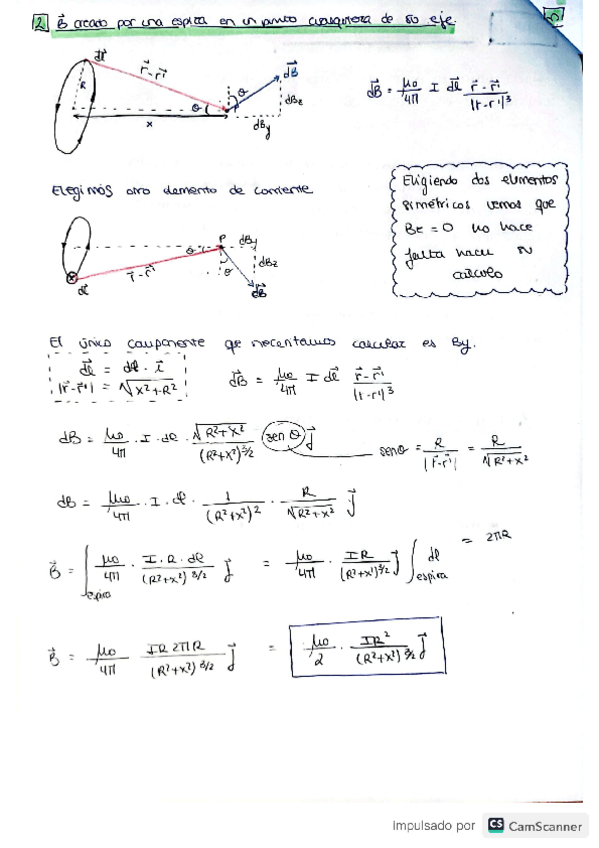 2 B⃗ creado por una espira en un punto cualquiera de su eje.
dl⃗
r⃗-r⃗'
R
θ
θ
dB⃗
dBz
dBy
x
dB⃗ = μ0/4π I dl⃗ (r⃗-r⃗')/|r-r'|³
Elegimos otro elemento de corriente
Eligiendo dos elementos
simétricos vemos que
Bz = 0 no hace
falta hacer su
cálculo
P
dBy
θ
dBz
θ
r⃗-r⃗'
dl⃗
dB⃗
El único componente que necesitamos calcular es By.
dl⃗ = dl · i⃗
|r⃗-r⃗'| = √(x²+R²)
dB⃗ = μ0/4π I dl⃗ (r⃗-r⃗')/|r-r'|³
dB = μ0/4π · I · dl · √(R²+x²)/(R²+x²)^3/2 (sen θ) j⃗
senθ = R/|r⃗-r⃗'| = R/√(R²+x²)
dB = μ0/4π · I · dl · 1/(R²+x²)² · R/√(R²+x²) j⃗
B⃗ = ∫espira μ0/4π · I·R·dl/(R²+x²)^3/2 j⃗ = μ0/4π · IR/(R²+x²)^3/2 j⃗ ∫espira dl = 2πR
B⃗ = μ0/4π IR2πR/(R²+x²)^3/2 j⃗ = μ0/2 · IR²/(R²+x²)^3/2 j⃗
Impulsado por CS CamScanner